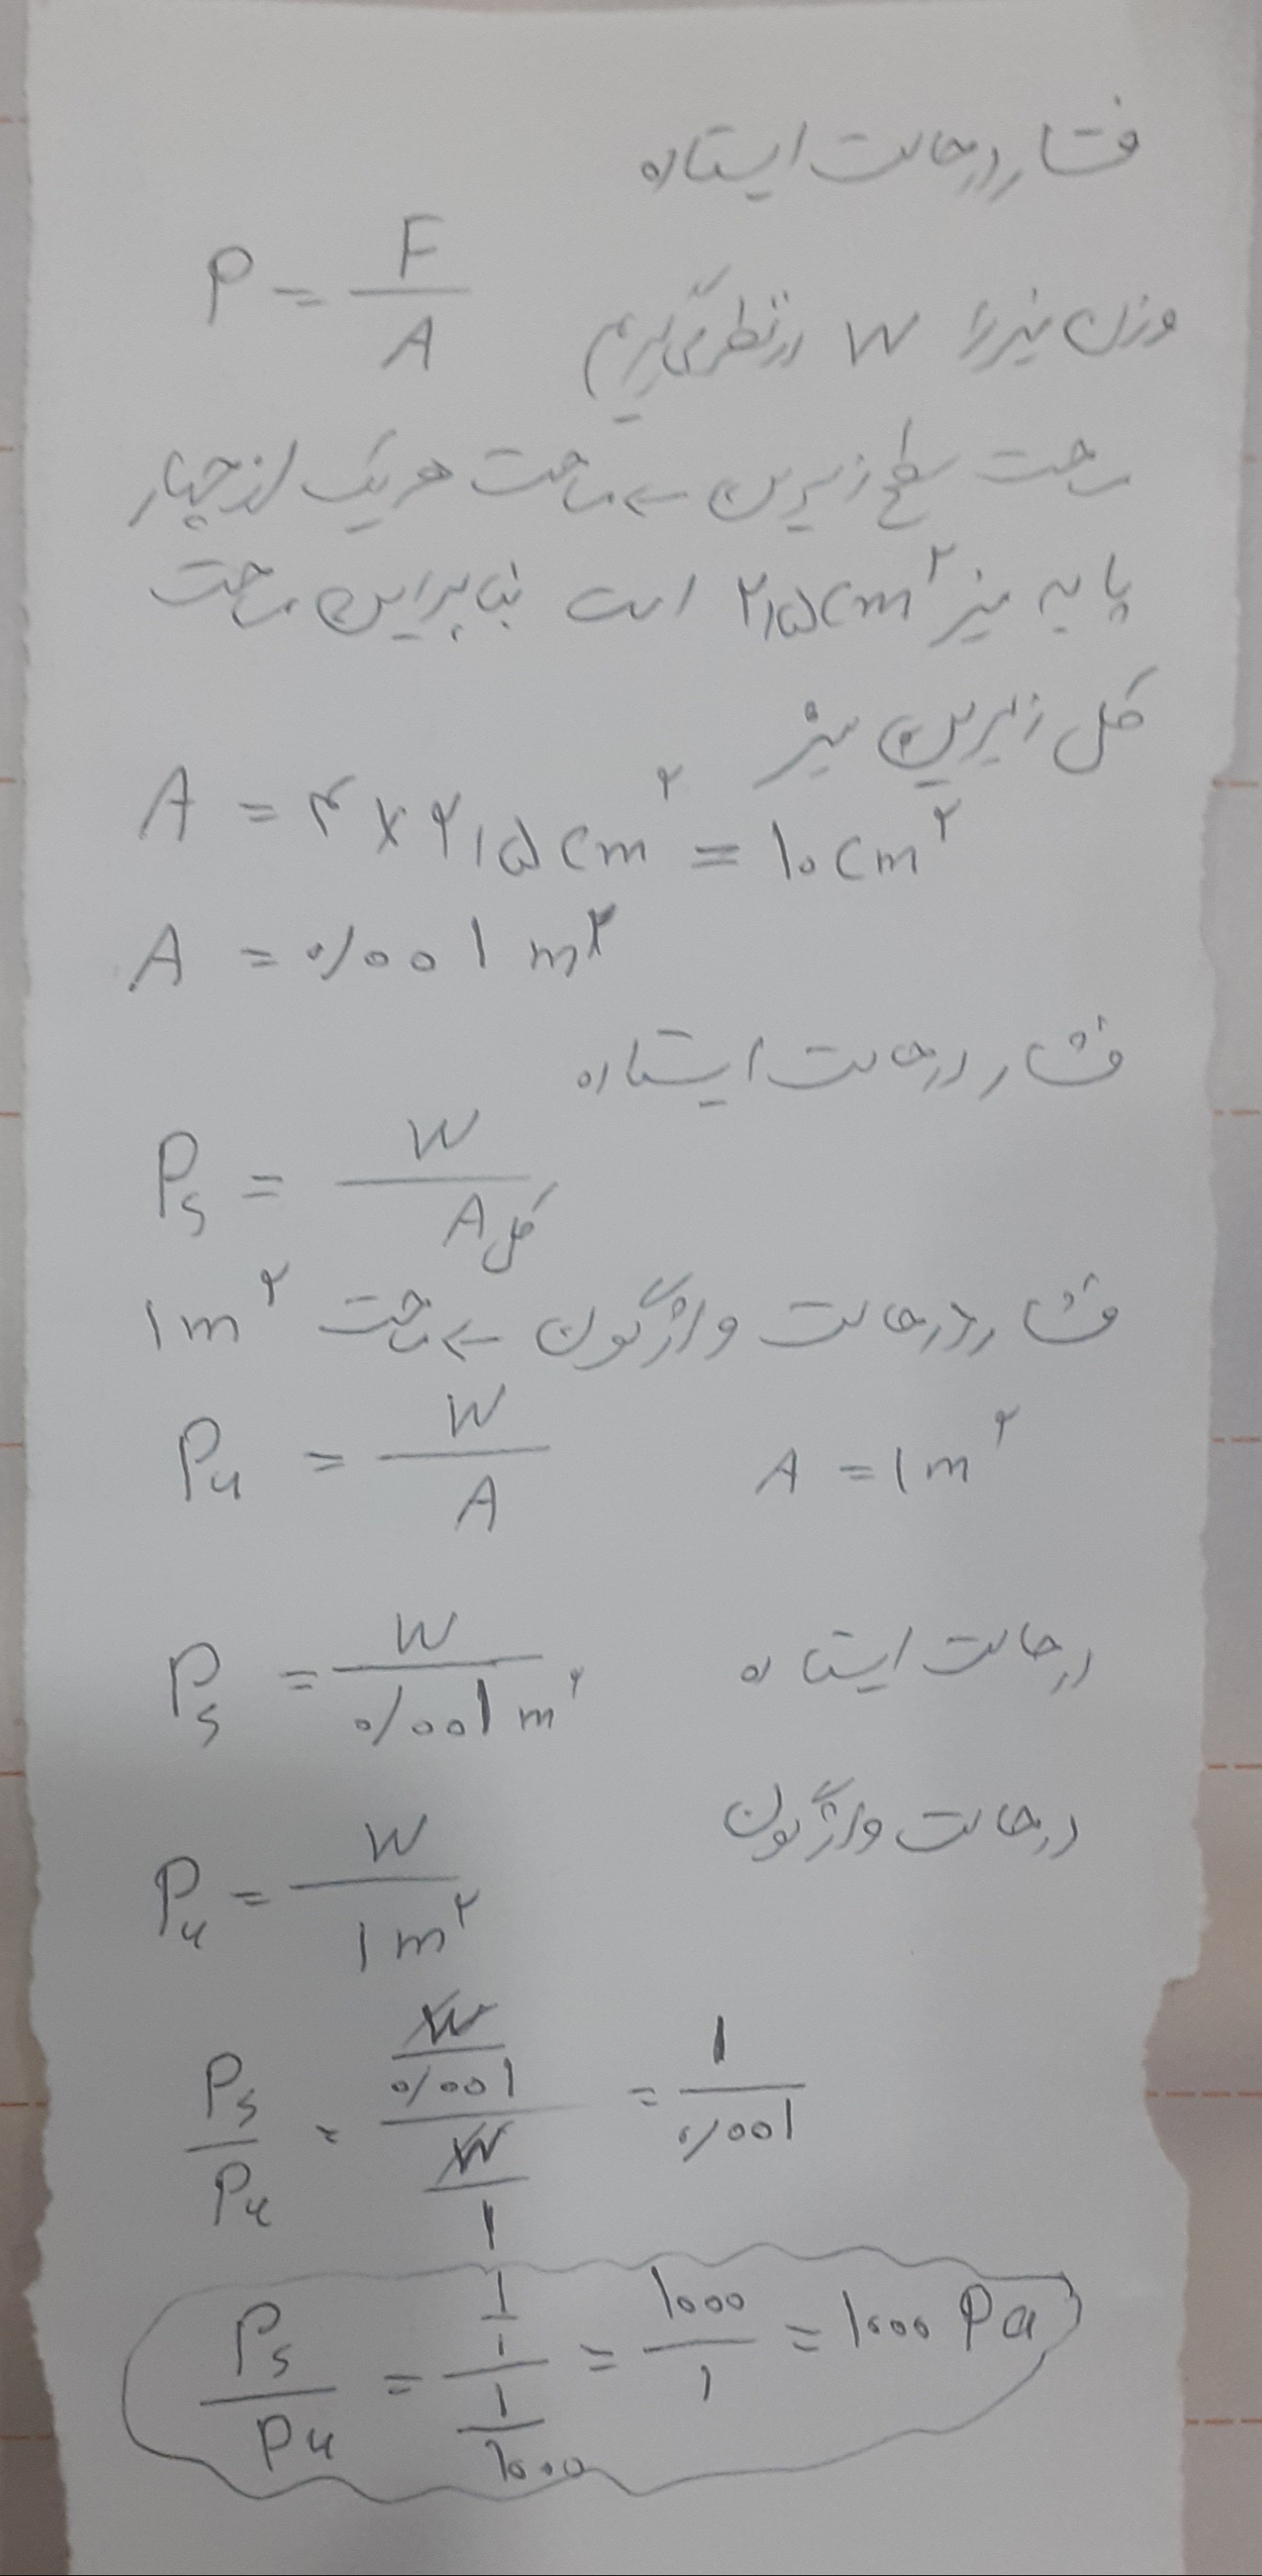 فشار در حالت ایستاده
P = F / A
وزن میز را W در نظر می‌گیریم
مساحت سطح زیرین ← مساحت هریک از چهار
پایه میز ۲٫۵cm² است بنابراین مساحت
کل زیرین میز
A = ۴ × ۲٫۵cm² = ۱۰cm²
A = ۰/۰۰۱ m²
فشار در حالت ایستاده
Ps = W / A کل
فشار در حالت واژگون ← مساحت ۱m²
Pu = W / A    A = ۱m²
Ps = W / ۰/۰۰۱ m²    در حالت ایستاده
در حالت واژگون
Pu = W / ۱m²
Ps / Pu = (W / ۰/۰۰۱) / (W / ۱) = ۱ / ۰/۰۰۱
Ps / Pu = (۱ / ۱) / (۱ / ۱۰۰۰) = ۱۰۰۰ / ۱ = ۱۰۰۰ Pa